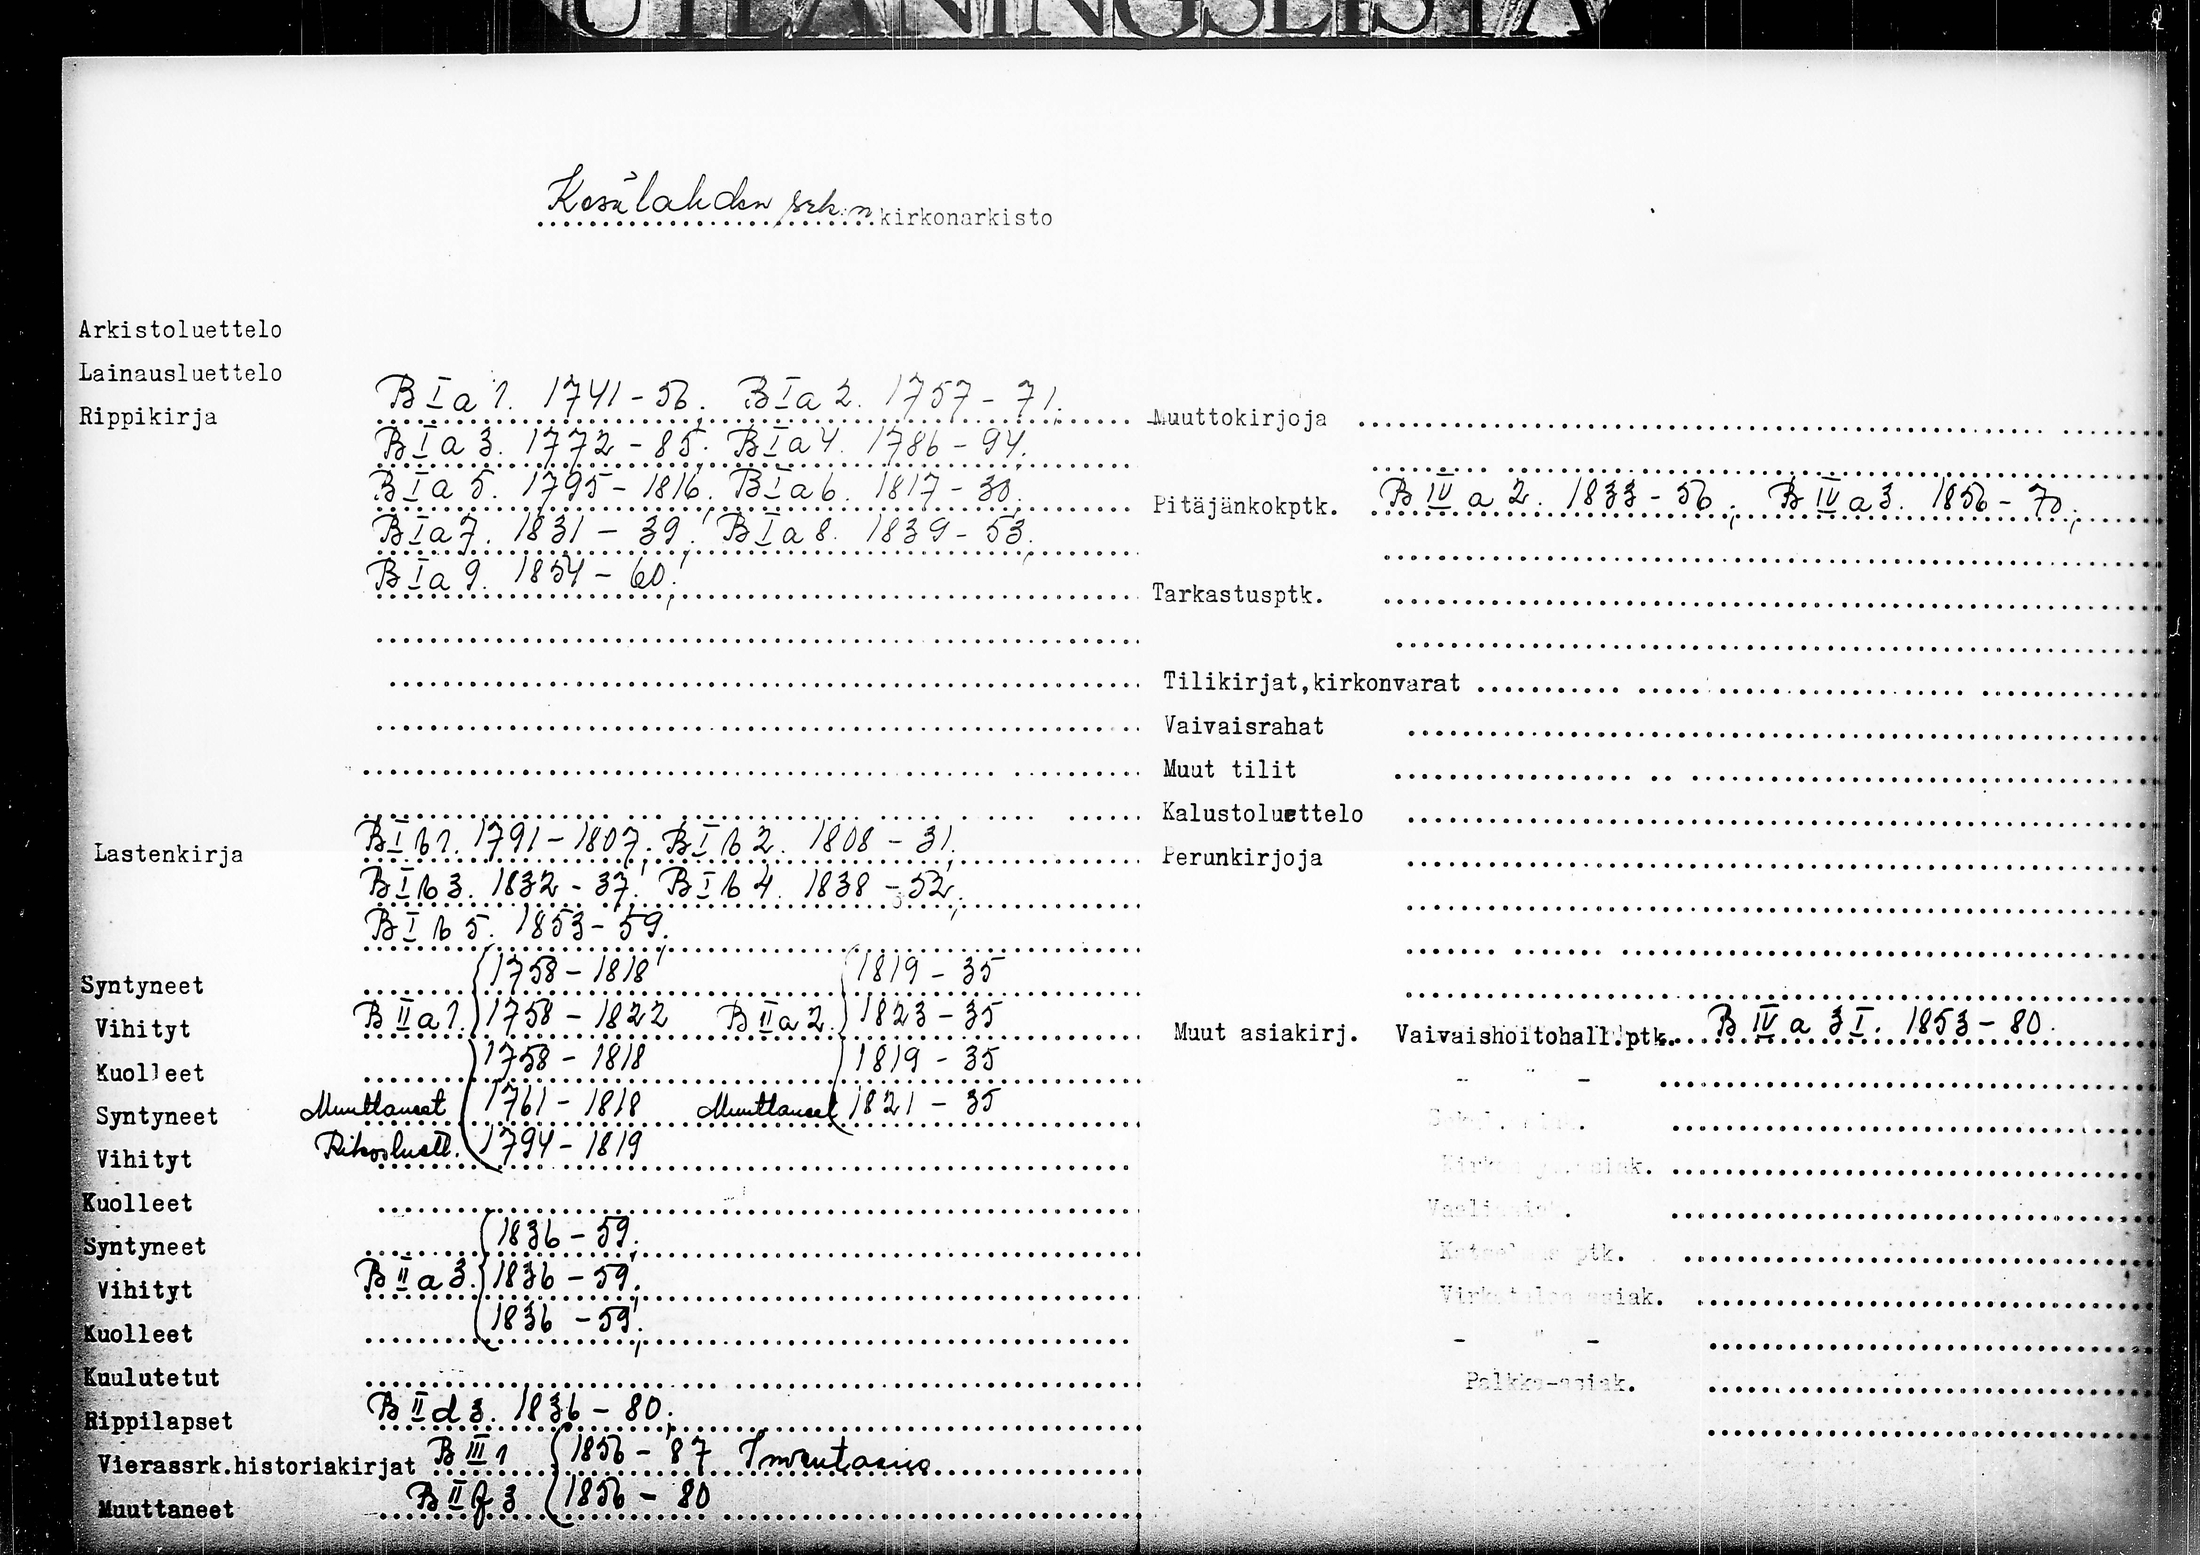 UTLÅNINGSLISTA
Kesälahden srk:n kirkonarkisto
Arkistoluettelo
Lainausluettelo
Rippikirja B I a 1. 1741-56; B I a 2. 1757-71;
B I a 3. 1772-85; B I a 4. 1786-94;
B I a 5. 1795-1816; B I a 6. 1817-30;
B I a 7. 1831-39; B I a 8. 1839-53;
B I a 9. 1854-60;
Lastenkirja B I b 1. 1791-1807; B I b 2. 1808-31;
B I b 3. 1832-37; B I b 4. 1838-52;
B I b 5. 1853-59;
Syntyneet 1758-1818 1819-35
Vihityt B II a 1. 1758-1822 B II a 2. 1823-35
Kuolleet 1758-1818 1819-35
Syntyneet Muuttaneet 1761-1818 Muuttaneet 1821-35
Vihityt Rikosluett. 1794-1819
Kuolleet
Syntyneet 1836-59;
Vihityt B II a 3. 1836-59;
Kuolleet 1836-59;
Kuulutetut
Rippilapset B II d 3. 1836-80;
Vierassrk.historiakirjat B III 1 1856-87 Inventario
Muuttaneet B II f 3 1856-80
Muuttokirjoja
Pitäjänkokptk. B IV a 2. 1833-56; B IV a 3. 1856-70;
Tarkastusptk.
Tilikirjat,kirkonvarat
Vaivaisrahat
Muut tilit
Kalustoluettelo
Perunkirjoja
Muut asiakirj. Vaivaishoitohall.ptk. B IV a 3 I. 1853-80.
- " -
- " -
Palkka-asiak.